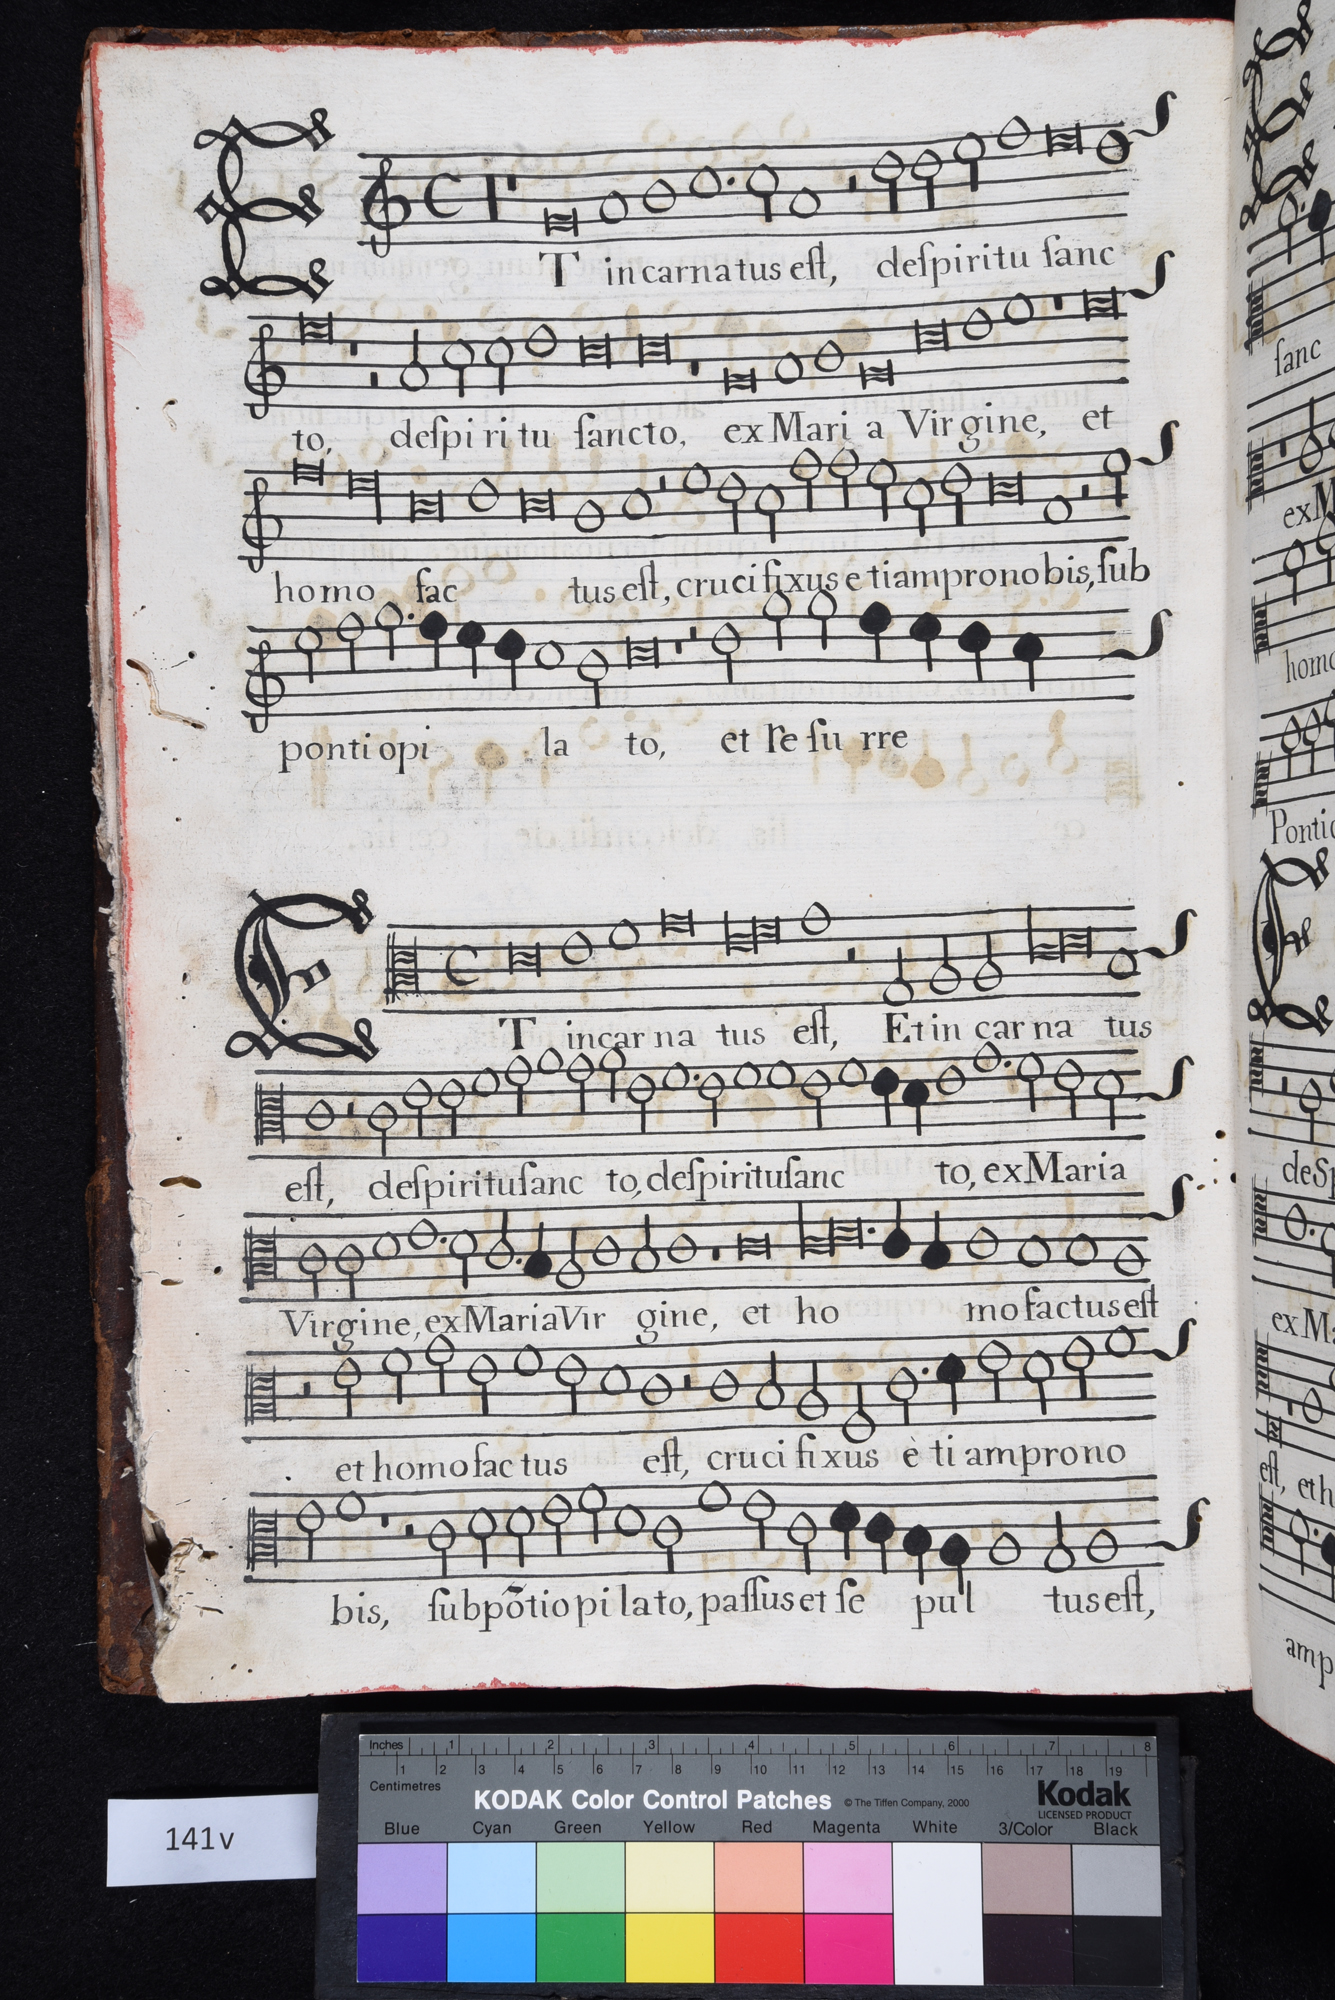 ET incarnatus eſt, deſpiritu ſanc
to, deſpi ri tu ſancto, ex Mari a Virgine, et
homo fac tus eſt, crucifixus etiampronobis, ſub
pontiopi la to, et Re ſu rre
ET incar na tus eſt, Et in car na tus
eſt, deſpirituſanc to, deſpirituſanc to, exMaria
Virgine, exMariaVir gine, et ho mo factus eſt
et homo factus eſt, cruci fixus è ti amprono
bis, ſubpõtio pi lato, paſſus et ſe pul tus eſt,
ſanc
exM
homo
Pontio
deSp
exMa
eſt, eth
amp
141v
Inches 1 2 3 4 5 6 7 8
Centimetres 1 2 3 4 5 6 7 8 9 10 11 12 13 14 15 16 17 18 19
KODAK Color Control Patches © The Tiffen Company, 2000 Kodak
LICENSED PRODUCT
Blue Cyan Green Yellow Red Magenta White 3/Color Black